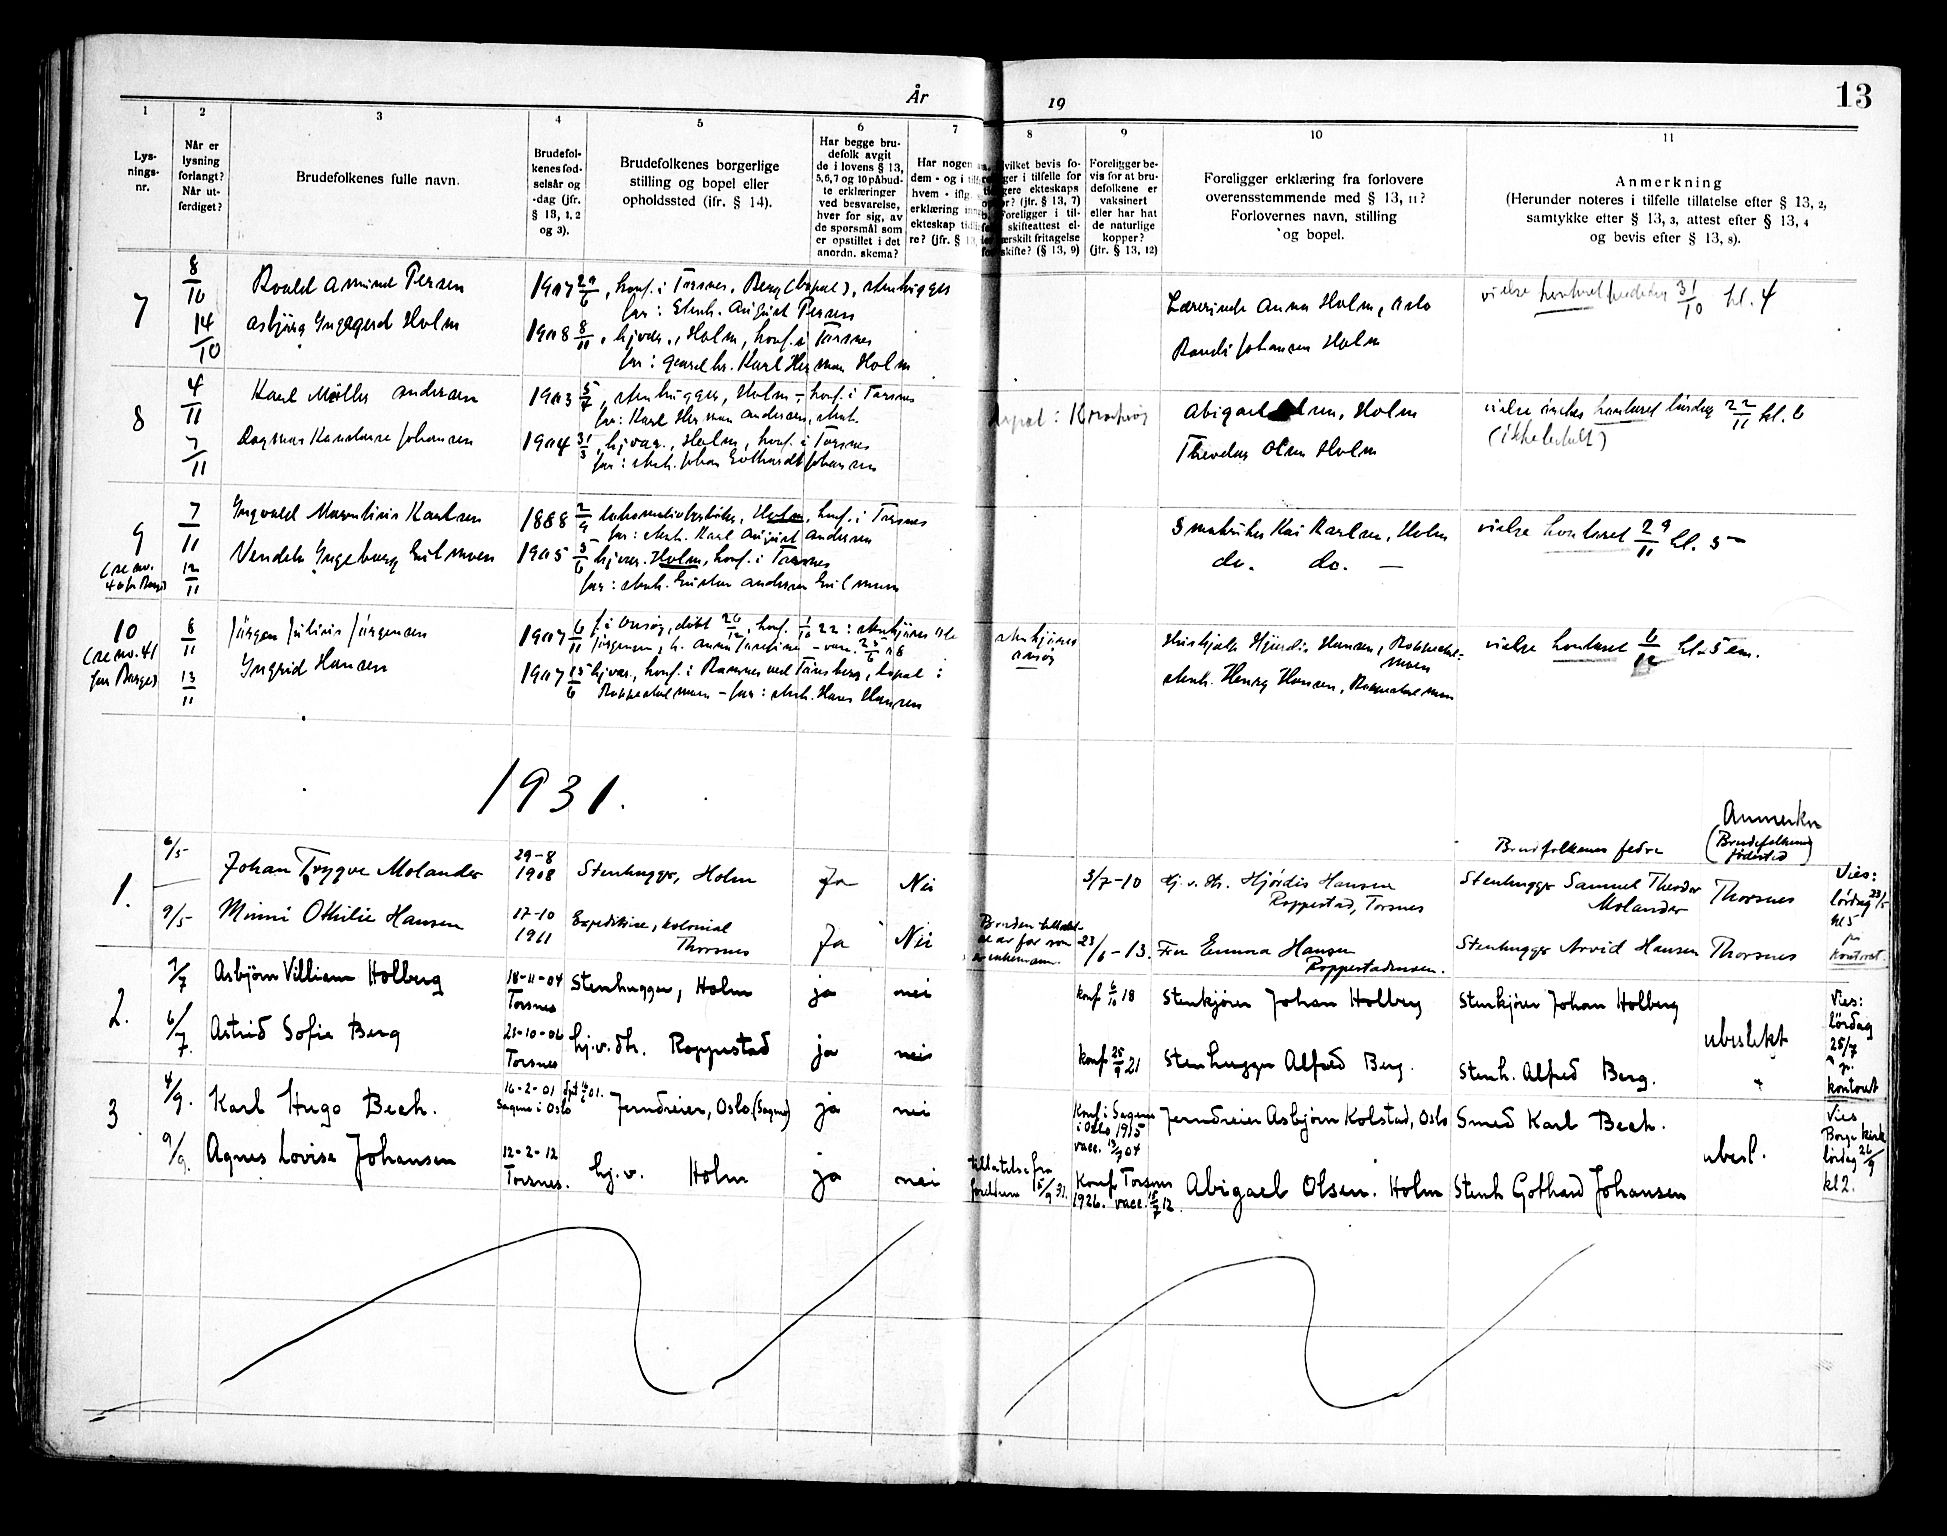 År 19
13
1 2 3 4 5 6 7 8 9 10 11
Lys-
nings-
nr.
Når er
lysning
forlangt?
Når ut-
ferdiget?
Brudefolkenes fulle navn.
Brudefol-
kenes fød-
selsår og
-dag (jfr.
§ 13, 1, 2
og 3).
Brudefolkenes borgerlige
stilling og bopel eller
opholdssted (jfr. § 14).
Har begge bru-
defolk avgit
de i lovens § 13,
5,6,7 og 10 påbud-
te erklæringer
ved besvarelse,
hver for sig, av
de spørsmål som
er opstillet i det
anordn. skema?
Har nogen
dem - og i
hvem - iflg.
erklæring
ekteskap
re? (jfr. § 13,
hvilket bevis fo-
ger i tilfelle for
gere ekteskaps
or? (jfr. § 13, 7)
Foreligger i til-
skifteattest el-
særskilt fritagelse
skifte? (§ 13, 9)
Foreligger be-
vis for at bru-
defolkene er
vaksinert
eller har hat
de naturlige
kopper?
(jfr. § 13, 12)
Foreligger erklæring fra forlovere
overensstemmende med § 13, 11?
Forlovernes navn, stilling
og bopel.
Anmerkning
(Herunder noteres i tilfelle tillatelse efter § 13, 2,
samtykke efter § 13, 3, attest efter § 13, 4
og bevis efter § 13, 8).
7 8/10 Roald Amund Persen 1907 29/6, konf. i Torsnes, Berg (bopæl), stenhugger
far: Stenh. August Persen
14/10 Asbjørg Ingegerd Holm 1908 8/11, hjvær., Holm, konf. i Torsnes
far: gaardbr. Karl Herman Holm
Lærerinde Anna Holm, Oslo
Randi Johansen Holm
vielse kontoret fredag 31/10 kl. 4
8 4/11 Karl Møller Andersen 1903 5/4, stenhugger, Holm - konf. i Torsnes
far: Karl Herman Andersen, stenh.
7/11 Dagmar Johansen 1904 31/3, hjvær., Holm, konf. i Torsnes
far: stenh. Johan Gothardt Johansen
Abigael Olsen, Holm
Theodor Olsen Holm
vielse kontoret lørdag 22/11 kl. 6
(ikke betalt)
9 7/11 Ingvald Karlsen 1888 2/9, Holm, konf. i Torsnes
far: stenh. Karl August Andersen
(se no.
12/11 Vendela Ingeborg Emilsmoen 1905 5/6 hjvær. Holm, konf. i Torsnes
far: stenh. Gustav Andersen
Kai Karlsen, Holm
do. do. -
vielse kontoret 29/11 kl. 5
10 8/11 Jørgen Julius Jørgensen 1907 6/11
(se no. 41
for Borge)
13/11 Ingrid Hansen 1907 15/6 hjvær., konf. i Ramnes ved Tønsberg, bopæl:
Roppestadmoen - far: stenh. Hans Hansen
stenkjører
Onsøy
Hushjelp Hjørdis Hansen, Roppestad-
moen
stenh. Henry Hansen, Roppestadmoen
vielse kontoret 6/12 kl. 5 em.
1931.
Anmerkn
Brudfolkenes fedre
(Brudefolkenes
fødested)
1. 6/5 Johan Trygve Molander 29-8
1908 Stenhugger, Holm Ja Nei
3/7-10 Hj. v. dtr. Hjørdis Hansen
Roppestad, Torsnes
Stenhugger Samuel Theodor
Molander Thorsnes
Vies:
lørdag 23/5
kl 5
på
kontoret
9/5 Minni Othilie Hansen 17-10
1911 Expeditrise, kolonial
Thorsnes Ja Nei
Bruden tillatel-
se av far som
er enkemann.
23/6-13. Fru Emma Hansen
Roppestadmoen.
Stenhugger Arvid Hansen Thorsnes
2. 7/7 Asbjørn Villiam Holberg 18-11-04
Torsnes Stenhugger, Holm ja nei
konf 6/10 18 Stenkjører Johan Holberg Stenkjører Johan Holberg
6/7. Astrid Sofie Berg 25-10-06
Torsnes hj.v. dtr. Roppestad ja nei
konf 25/9 21 Stenhugger Alfred Berg. Stenh. Alfred Berg.
ubeslektet
"
Vies:
Lørdag
25/7
på
kontoret
3 4/9. Karl Hugo Bech. 16-2-01 døpt 16/6 01.
Sagene i Oslo Jerndreier, Oslo. (Sagene) ja nei
Konf. i Sagene
i Oslo 1915
vacc. 13/9 04
Jerndreier Asbjørn Kolstad, Oslo Smed Karl Bech.
9/9. Agnes Lovise Johansen 12-2-12
Torsnes. hj.v. Holm ja nei
tillatelse fra
foreldrene 5/9 31.
Konf Torsnes
1926. vacc. 15/7 12.
Abigael Olsen. Holm Stenh Gothard Johansen
ubesl.
Vies
Borge kirke
lørdag 26/9
kl 2.